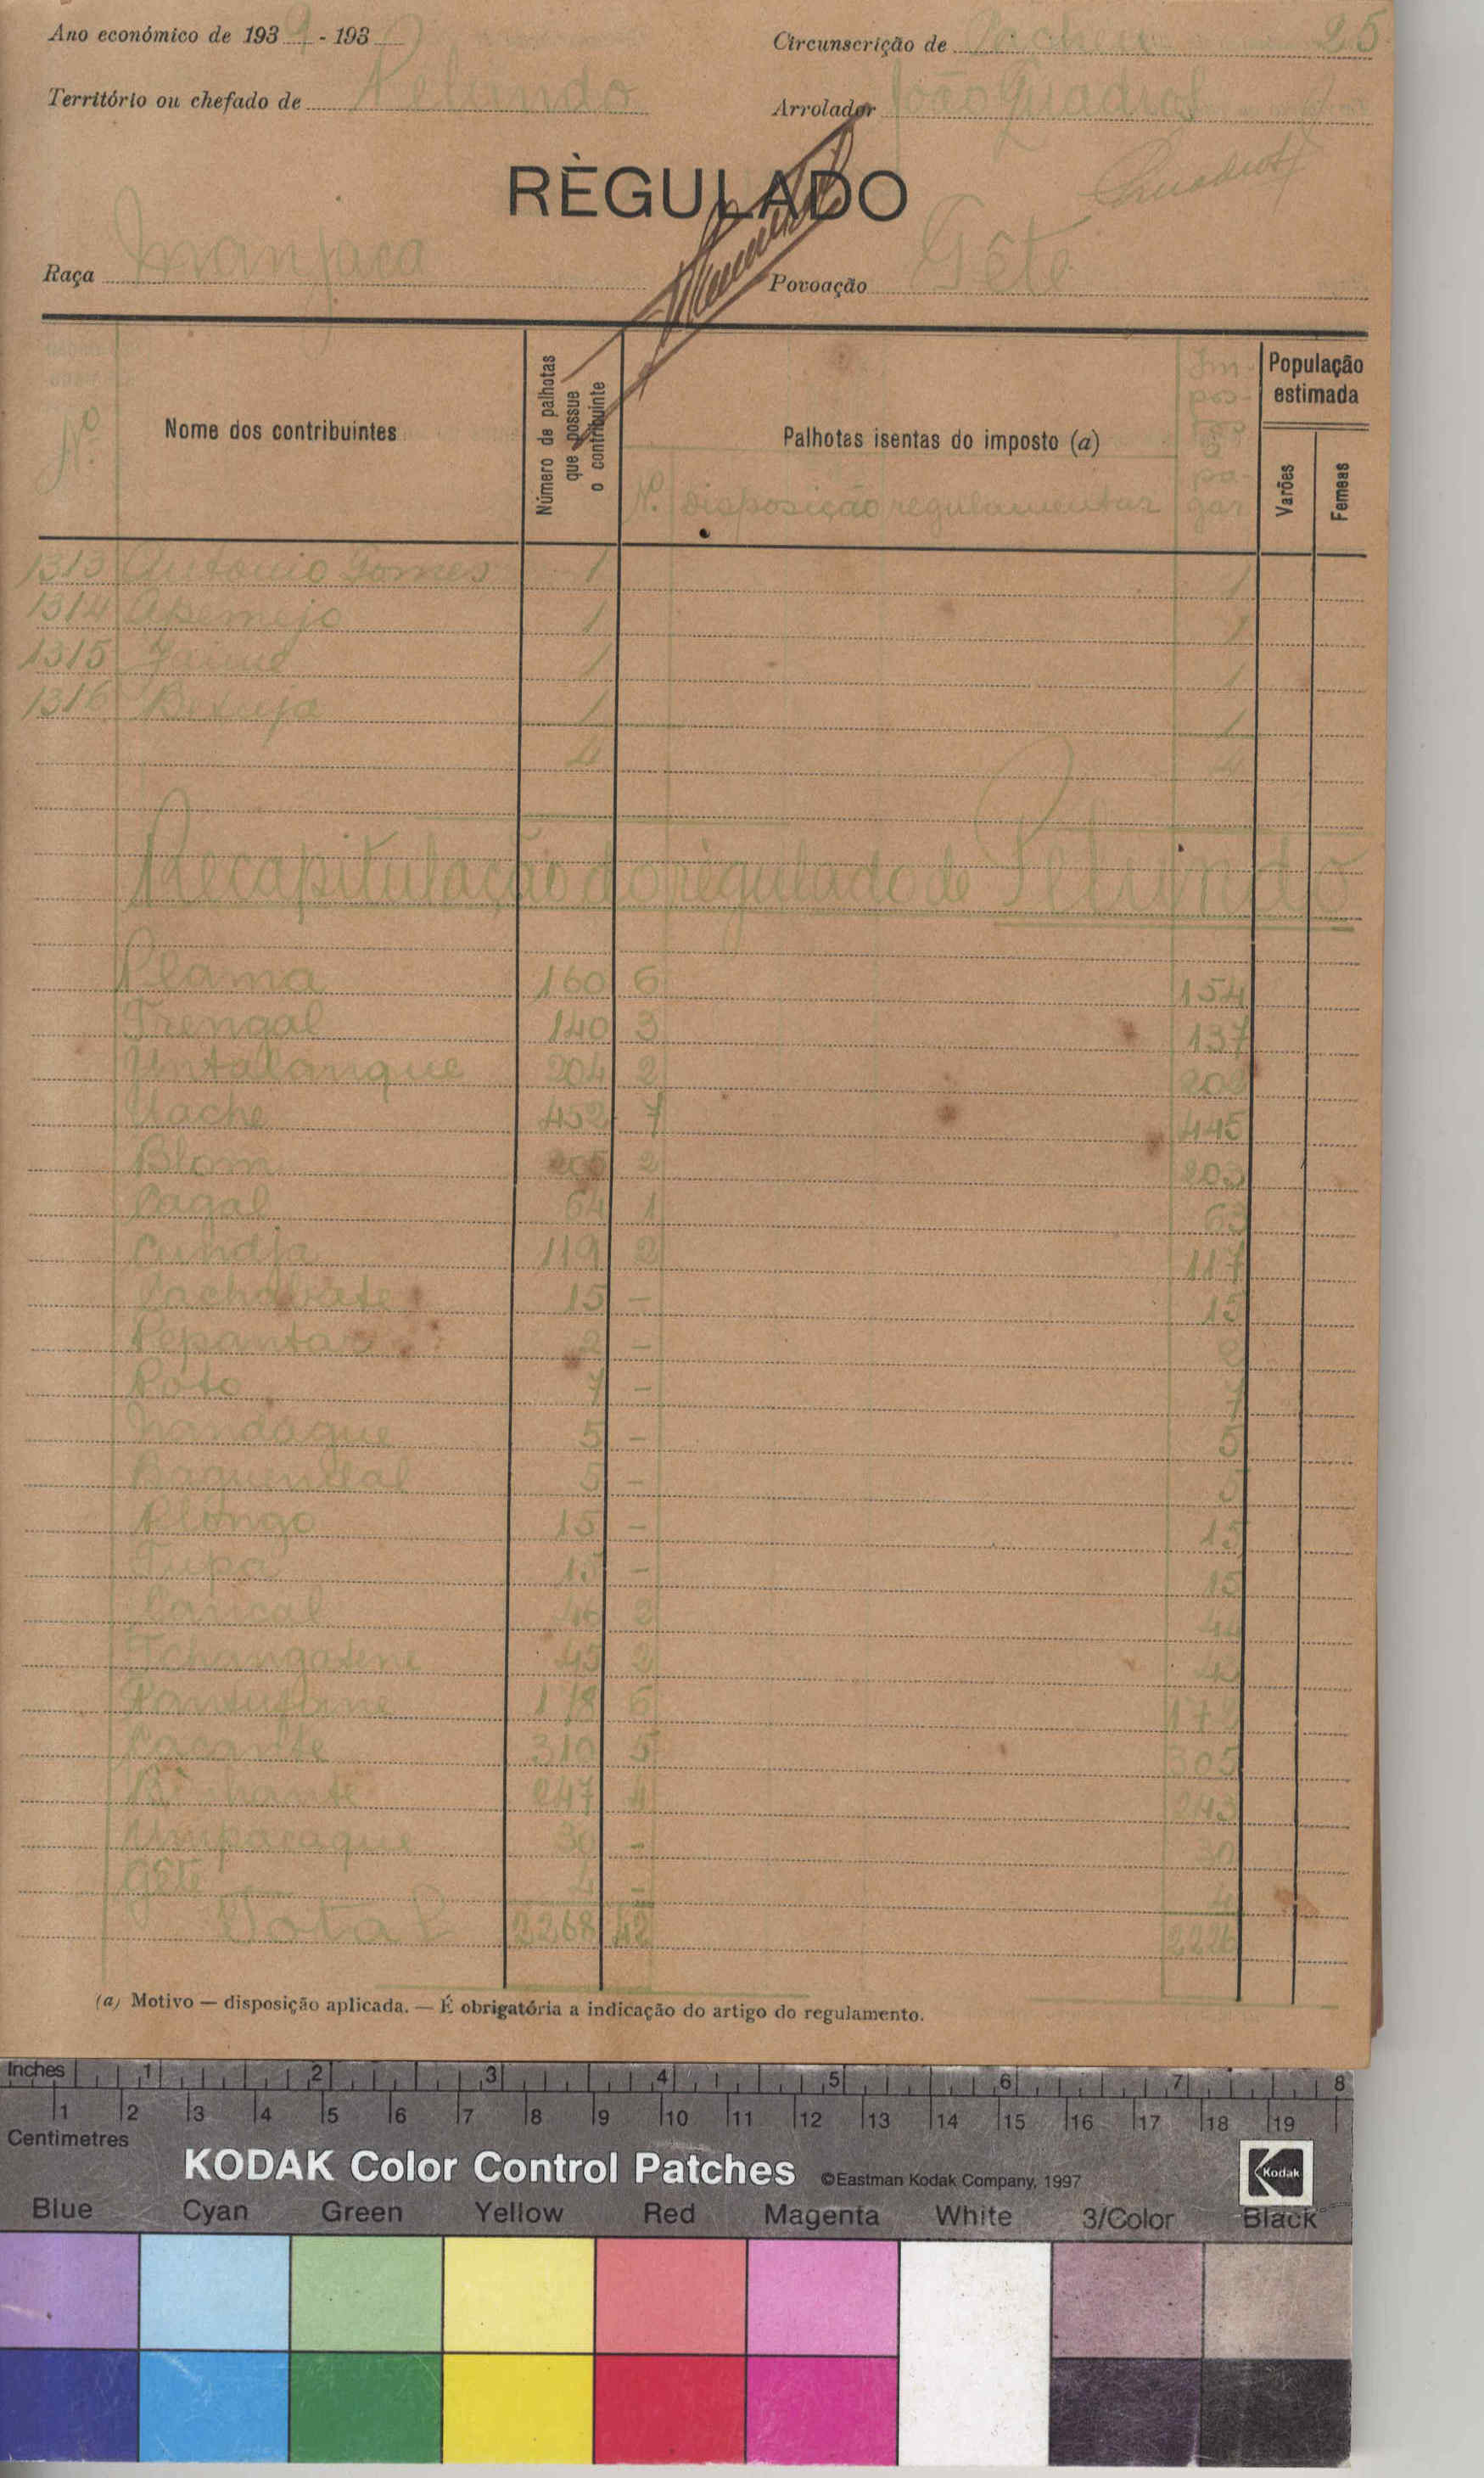 Ano económico de 1939 - 193
Circunscrição de Cacheu 25
Território ou chefado de Pelundo
Arrolador João Quadrof
RÈGULADO
Raça Manjaca
Povoação Gête
Nº Nome dos contribuintes
Número de palhotas que possue o contribuinte
Palhotas isentas do imposto (a)
Nº. disposição regulamentar
Im-
pos-
tos
a
pa-
gar
População estimada
Varões
Femeas
1313 Antonio Gomes 1 1
1314 Apemejo 1 1
1315 Jaime 1 1
1316 Betuja 1 1
4 4
Recapitulação do règulado de Pelundo
Plama 160 6 154
Trengal 140 3 137
Untalanque 204 2 202
Uache 452 7 445
Blom 205 2 203
Pagal 64 1 63
Cundja 119 2 117
Cachobate 15 - 15
Pepanta 2 - 2
Poto 7 - 7
Nandaque 5 - 5
Baquendal 5 - 5
Plongo 15 - 15
Tupa 15 - 15
Canical 46 2 44
Tchangatene 45 2 43
178 6 172
Cacante 310 5 305
Binhante 247 4 243
Umpacaque 30 - 30
Gête 4 - 4
Total 2268 42 2226
(a) Motivo — disposição aplicada. — É obrigatória a indicação do artigo do regulamento.
Inches 1 2 3 4 5 6 7 8
1 2 3 4 5 6 7 8 9 10 11 12 13 14 15 16 17 18 19
Centimetres
KODAK Color Control Patches ©Eastman Kodak Company, 1997 Kodak
Blue Cyan Green Yellow Red Magenta White 3/Color Black